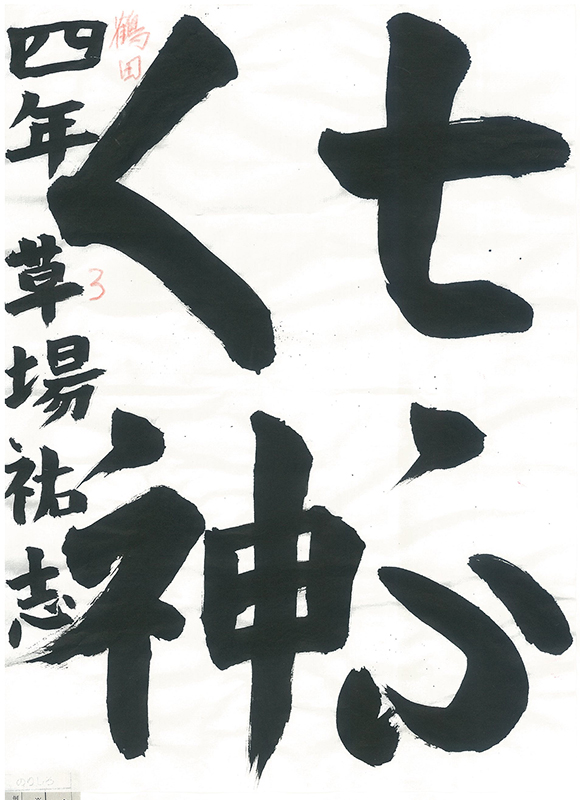 七ふ
く神
四年 草場祐志
鶴田
3